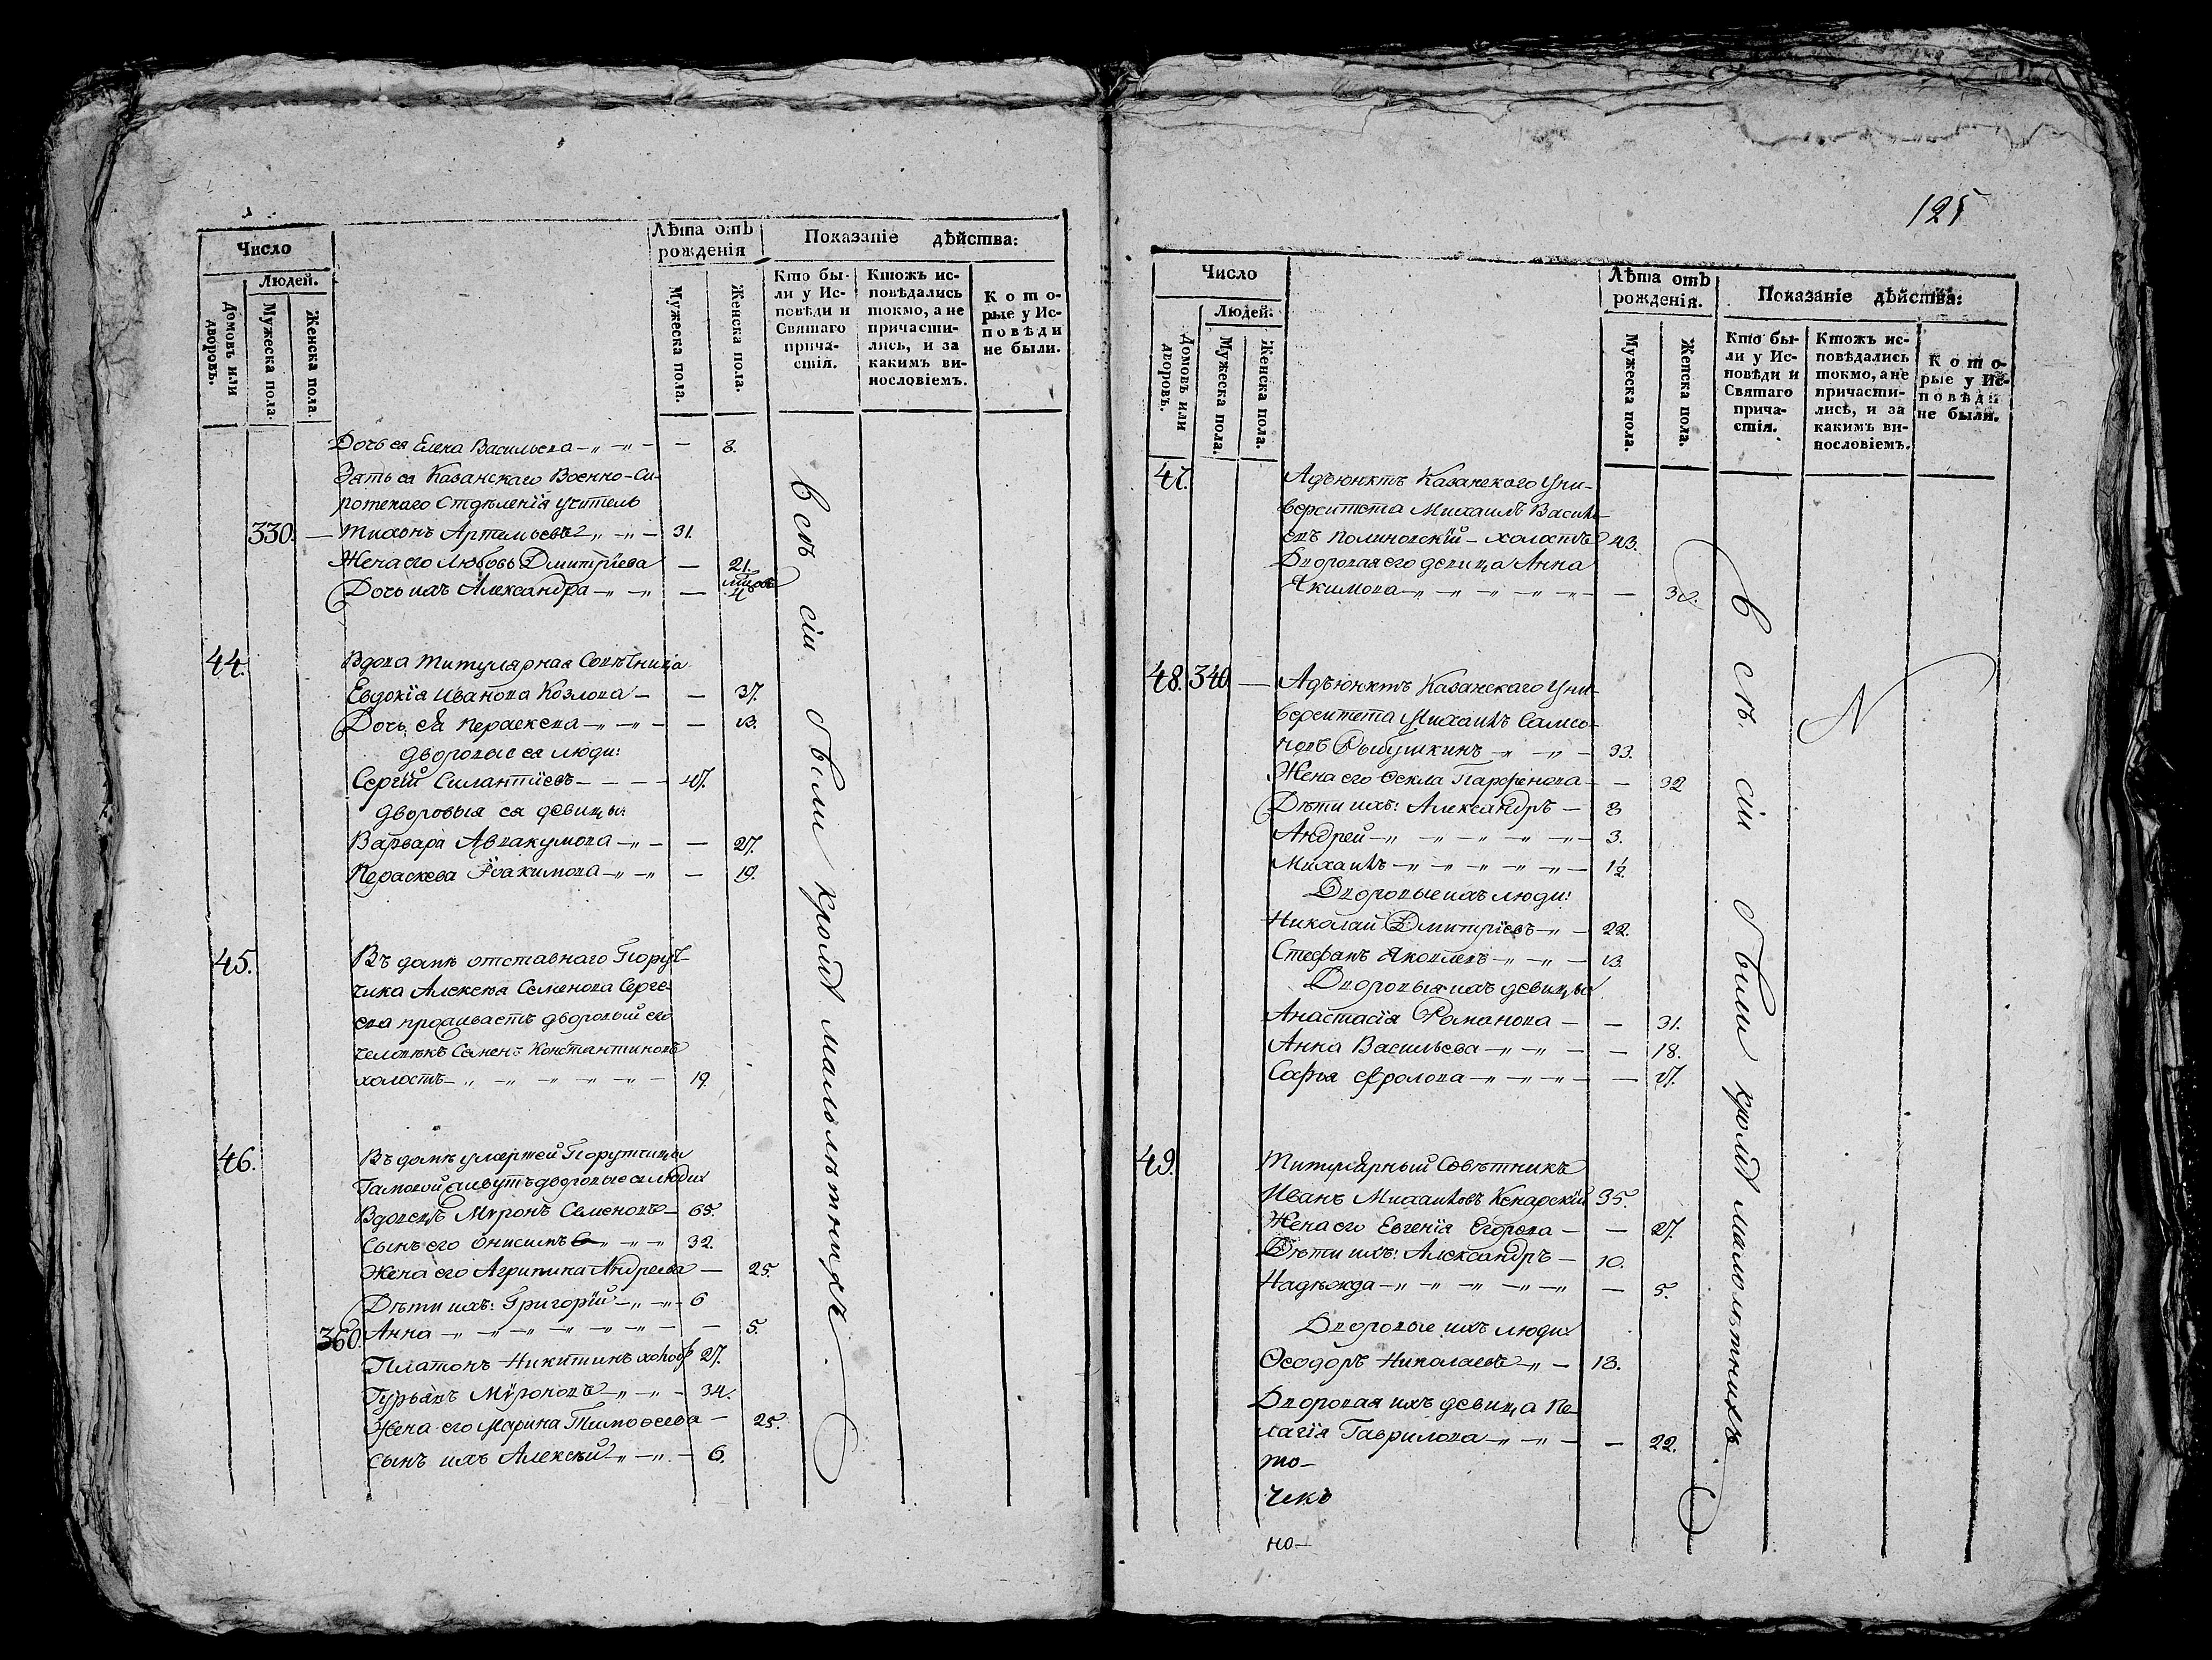 Число
Людей.
Домовъ или дворовъ.
Мужеска пола.
Женска пола.
Лѣта отъ рожденія
Мужеска пола.
Женска пола.
Показаніе дѣйства:
Кто бы-
ли у Ис-
повѣди и
Святаго
прича-
стія.
Ктожъ ис-
повѣдались
токмо, а не
причасти-
лись, и за
какимъ ви-
нословіемъ.
Кото-
рые у Ис-
повѣди
не были.
Дочь ея Елена Васильева — 8.
Зять ея Казанскаго Военно-Си-
ротскаго Отдѣленія учитель
330. — Тихонъ Артемьевъ — 31.
Жена его Любовь Дмитріева — 21.
Дочь ихъ Александра — 4 мѣсяцовъ
44. Вдова Титулярная Совѣтница
Евдокія Иванова Козлова — 37.
Дочь ея Параскева — 13.
Дворовые ея люди:
Сергій Силантіевъ — 47.
Дворовыя ея девицы:
Варвара Аввакумова — 27.
Пераскева Іоакимова — 19.
45. Въ домѣ отставнаго Поруч-
чика Алексѣя Семенова Серге-
ева проживаетъ дворовый его
человѣкъ Семенъ Константиновъ
холостъ — 19.
46. Въ домѣ умершей Порутчицы
живутъ дворовые люди:
Вдовецъ Миронъ Семеновъ — 65.
Сынъ его Онисимъ — 32.
Жена его Агрипина Андреева — 25.
Дѣти ихъ: Григорій — 6
360. Анна — 5.
Платонъ Никитинъ холос 27.
Гурьянъ Мироновъ — 34.
Жена его Марина Тимоѳеева — 25.
Сынъ ихъ Алексѣй — 6.
Всѣ сіи были кромѣ малолѣтнихъ.
125
Число
Людей.
Домовъ или дворовъ.
Мужеска пола.
Женска пола.
Лѣта отъ рожденія.
Мужеска пола.
Женска пола.
Показаніе дѣйства:
Кто бы-
ли у Ис-
повѣди и
Святаго
прича-
стія.
Ктожъ ис-
повѣдались
токмо, а не
причасти-
лись, и за
какимъ ви-
нословіемъ.
Кото-
рые у Ис-
повѣди
не были.
47. Адъюнктъ Казанскаго Уни-
верситета Михаилъ Василь-
евъ Полиновскій — холостъ 43.
Дворовая его девица Анна
Якимова — 30.
48. 340 — Адъюнктъ Казанскаго Уни-
верситета Михаилъ Самсо-
новъ Рыбушкинъ — 33.
Жена его Ѳекла Парфенова — 32
Дѣти ихъ: Александръ — 8
Андрей — 3.
Михаилъ — 1½.
Дворовые ихъ люди:
Николай Дмитріевъ — 22.
Стефанъ Яковлевъ — 13.
Дворовыя ихъ девицы
Анастасія Романова — 31.
Анна Васильева — 18.
Софья Фролова — 17.
49. Титулярный Совѣтникъ
Иванъ Михаиловъ Кенарскій 35.
Жена его Евгенія Егорова — 27.
Дѣти ихъ: Александръ — 10.
Надѣжда — 5.
Дворовые ихъ люди:
Ѳеодоръ Николаевъ — 13.
Дворовая ихъ девица Пе-
лагія Гаврилова — 22.
то-
чек
но-
Всѣ сіи были кромѣ малолѣтнихъ.